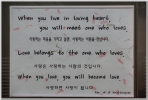 When you live in loving heart,
you will meet one who loves.
사랑하는 마음을 가지고 살면, 사랑하는 사람을 만납니다.
Love belongs to the one who loves.
사랑은 사랑하는 사람의 것입니다.
When you love, you will become love
사랑하면 사랑이 됩니다.